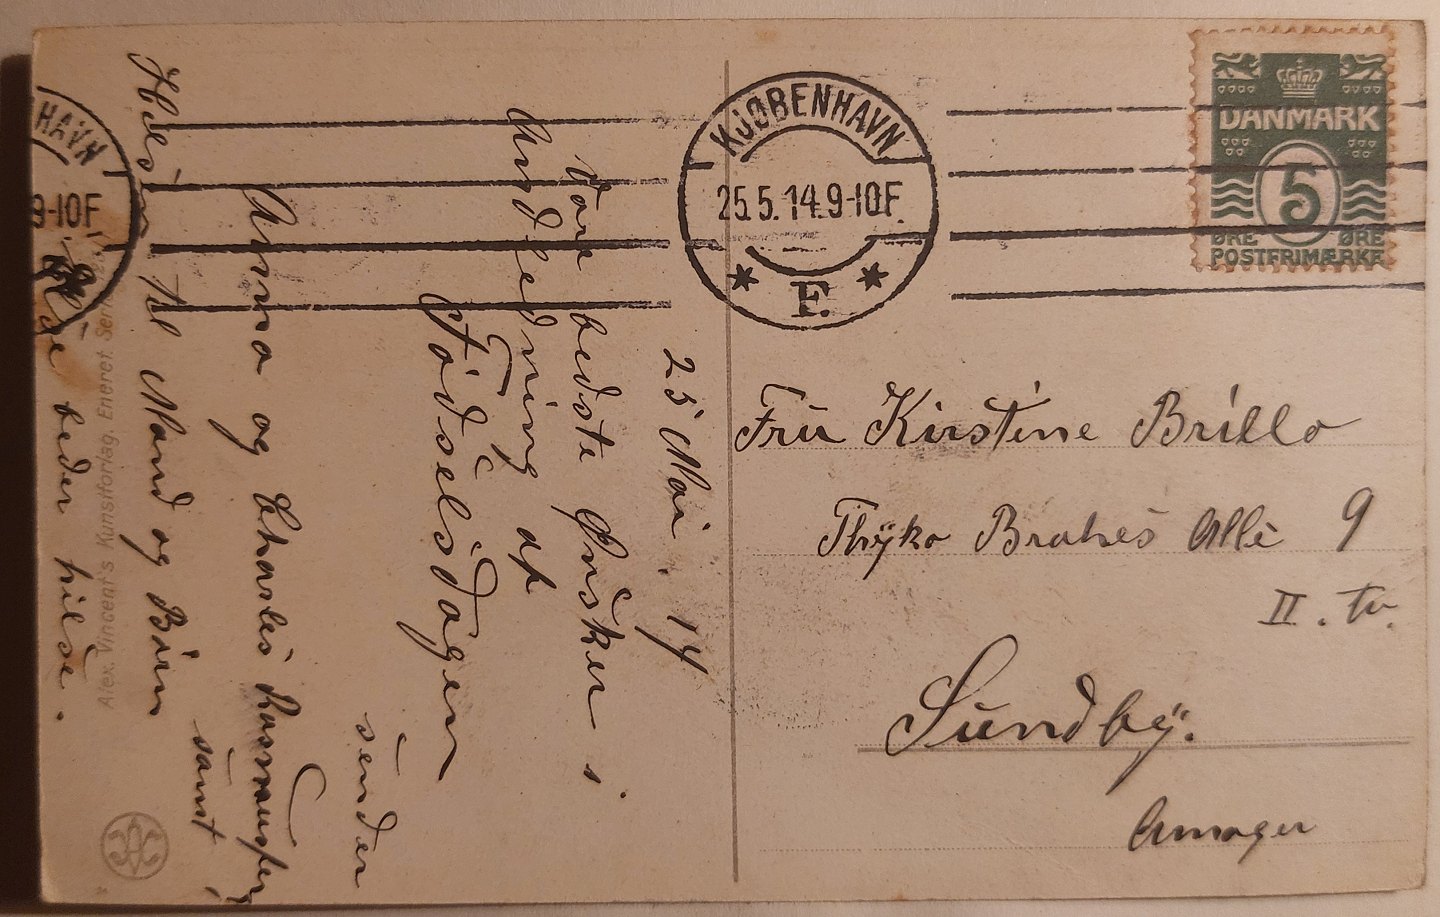 KJØBENHAVN
25.5.14.9-10F.
F.
DANMARK
5
ØRE ØRE
POSTFRIMÆRKE
HAVN
9-10F
25 Mai. 14
Vore bedste Ønsker i
Andledning af
Fødselsdagen
sender
Anna og Charles Rasmussen
samt
Hilsen til Mand og Børn
beder hilse.
Fru Kirstine Brillo
Thyko Brahes Alle 9
II. tv.
Sundby.
Amager
Alex. Vincent's Kunstforlag. Eneret.